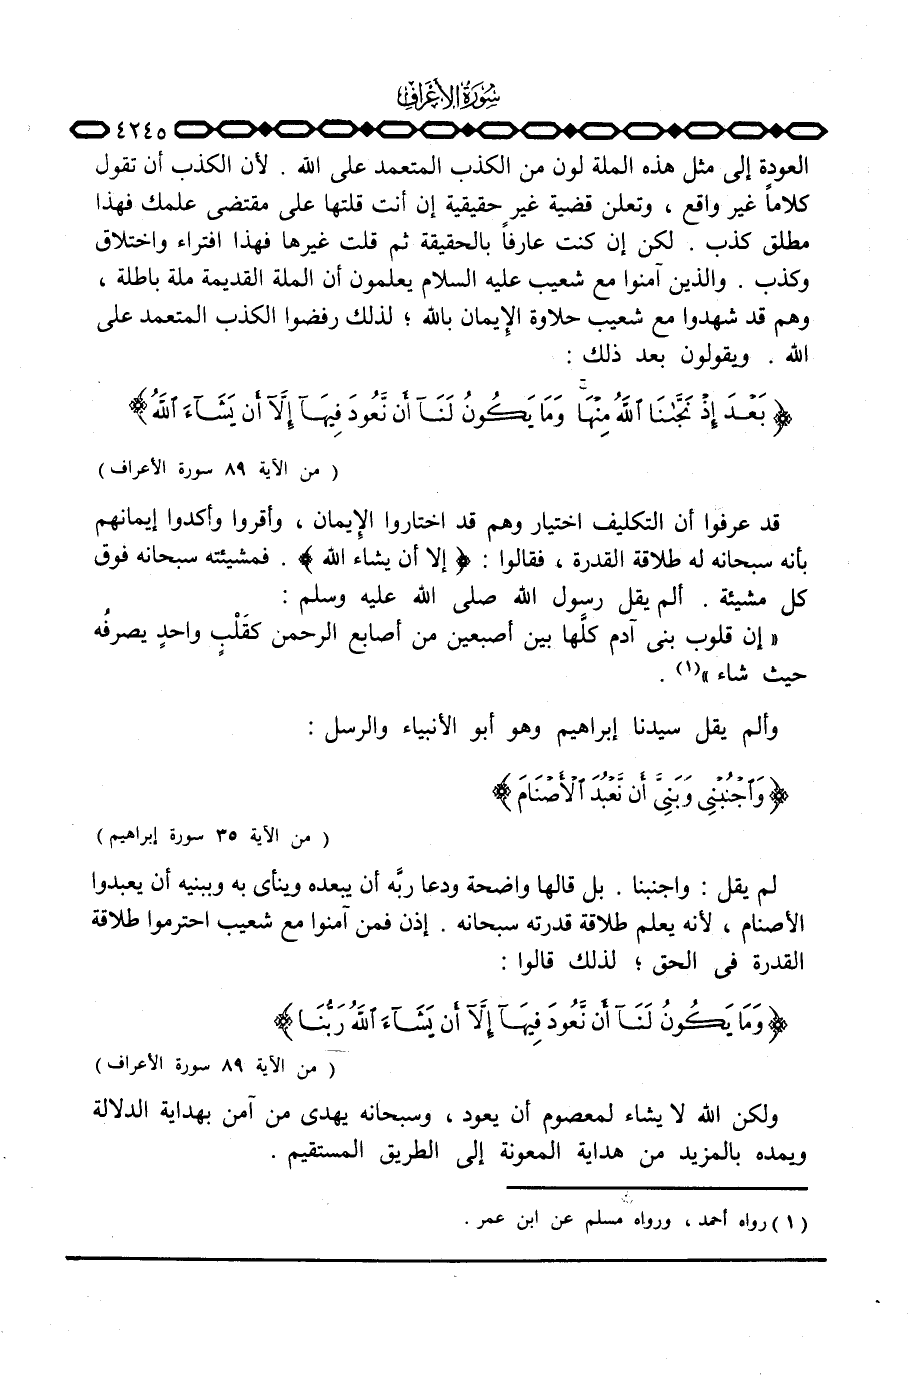 سورة الأعراف
٤٢٤٥
العودة إلى مثل هذه الملة لون من الكذب المتعمد على الله . لأن الكذب أن تقول
كلاماً غير واقع ، وتعلن قضية غير حقيقية إن أنت قلتها على مقتضى علمك فهذا
مطلق كذب . لكن إن كنت عارفاً بالحقيقة ثم قلت غيرها فهذا افتراء واختلاق
وكذب . والذين آمنوا مع شعيب عليه السلام يعلمون أن الملة القديمة ملة باطلة ،
وهم قد شهدوا مع شعيب حلاوة الإيمان بالله ؛ لذلك رفضوا الكذب المتعمد على
الله . ويقولون بعد ذلك :
﴿ بَعْدَ إِذْ نَجَّىٰنَا ٱللَّهُ مِنْهَا ۚ وَمَا يَكُونُ لَنَآ أَن نَّعُودَ فِيهَآ إِلَّآ أَن يَشَآءَ ٱللَّهُ ﴾
( من الآية ٨٩ سورة الأعراف )
قد عرفوا أن التكليف اختيار وهم قد اختاروا الإيمان ، وأقروا وأكدوا إيمانهم
بأنه سبحانه له طلاقة القدرة ، فقالوا : ﴿ إلا أن يشاء الله ﴾ . فمشيئته سبحانه فوق
كل مشيئة . ألم يقل رسول الله صلى الله عليه وسلم :
« إن قلوب بنى آدم كلَّها بين أصبعين من أصابع الرحمن كقَلْبٍ واحدٍ يصرفُه
حيث شاء »(١) .
وألم يقل سيدنا إبراهيم وهو أبو الأنبياء والرسل :
﴿ وَٱجْنُبْنِى وَبَنِىَّ أَن نَّعْبُدَ ٱلْأَصْنَامَ ﴾
( من الآية ٣٥ سورة إبراهيم )
لم يقل : واجنبنا . بل قالها واضحة ودعا ربَّه أن يبعده وينأى به وببنيه أن يعبدوا
الأصنام ، لأنه يعلم طلاقة قدرته سبحانه . إذن فمن آمنوا مع شعيب احترموا طلاقة
القدرة فى الحق ؛ لذلك قالوا :
﴿ وَمَا يَكُونُ لَنَآ أَن نَّعُودَ فِيهَآ إِلَّآ أَن يَشَآءَ ٱللَّهُ رَبُّنَا ﴾
( من الآية ٨٩ سورة الأعراف )
ولكن الله لا يشاء لمعصوم أن يعود ، وسبحانه يهدى من آمن بهداية الدلالة
ويمده بالمزيد من هداية المعونة إلى الطريق المستقيم .
(١) رواه أحمد ، ورواه مسلم عن ابن عمر .